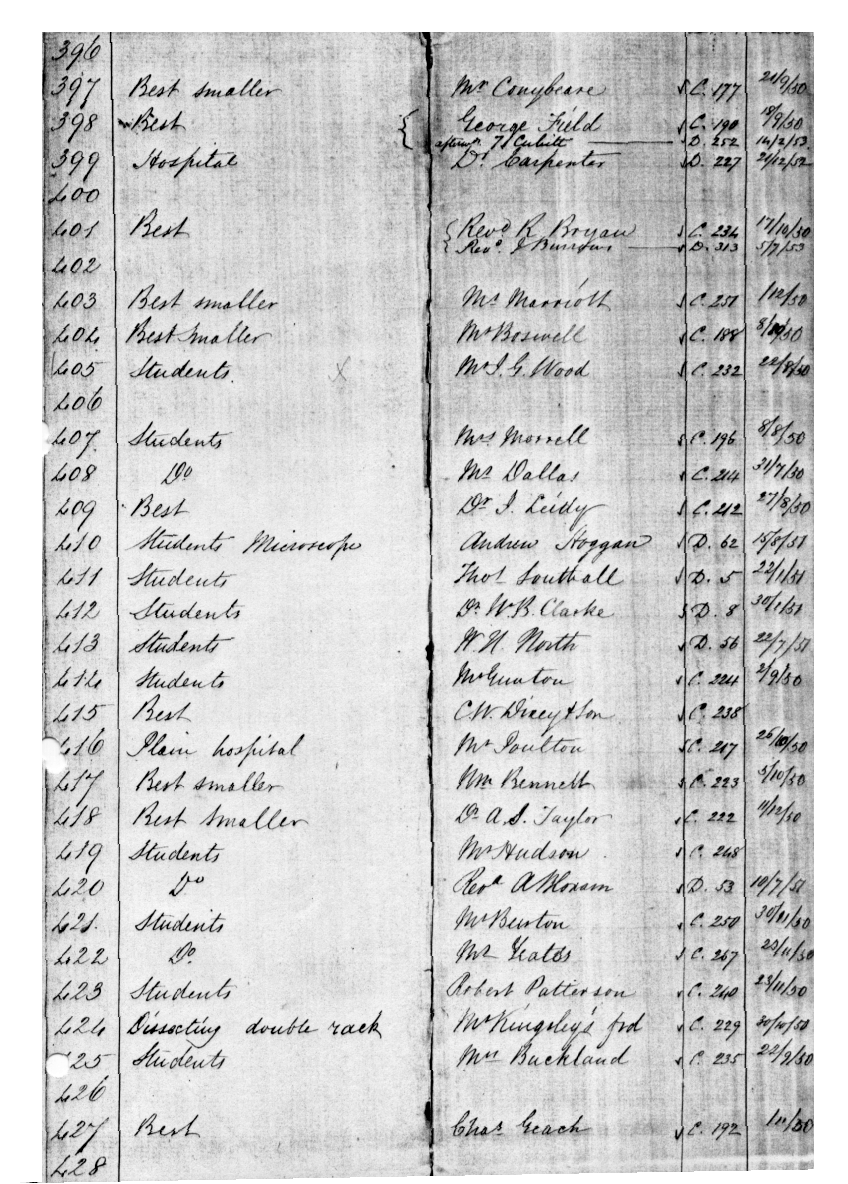 396
397 Best smaller Mr Conybeare C. 177 21/9/50
398 Best { George Field C. 190 18/9/50
afterwds Cubitt D. 252 14/2/53
399 Hospital Dr Carpenter D. 227 21/12/52
400
401 Best { Revd R Bryan C. 234 17/10/50
Revd. J Burrows D. 313 5/7/53
402
403 Best smaller Mr Marriott C. 251 /12/50
404 Best Smaller Mr Boswell C. 188 50
405 Students. X Mr J. G. Wood C. 232 22/8/50
406
407 Students Mrs Morrell C. 196 8/8/50
408 Do Mr Dallas C. 214 31/7/50
409 Best Dr J. Leidy C. 212 27/8/50
410 Students Microscope Andrew Hoggan D. 62 15/8/51
411 Students Thos Southall D. 5 22/1/51
412 Students Dr W. B. Clarke D. 8 30/1/51
413 Students W. H. North D. 56 22/7/51
414 Students Mr C. 224 2/9/50
415 Best C W. Dixey & Son C. 238
416 Plain hospital Mr Poulton C. 217 25/10/50
417 Best smaller Wm Bennett C. 223 5/10/50
418 Best Smaller Dr A. S. Taylor C. 222 11/12/50
419 Students Mr Hudson C. 248
420 Do Revd A Bloxam D. 53 10/7/51
421. Students Mr Burton C. 250 30/11/50
422 Do. Mr Yeates C. 247 /11/50
423 Students Robert Patterson C. 240 23/11/50
424 Dissecting double rack Mr Kingsley's frd C. 229 30/10/50
425 Students Mrs Buckland C. 235 22/9/50
426
427 Best Chas Geach C. 192 /50
428